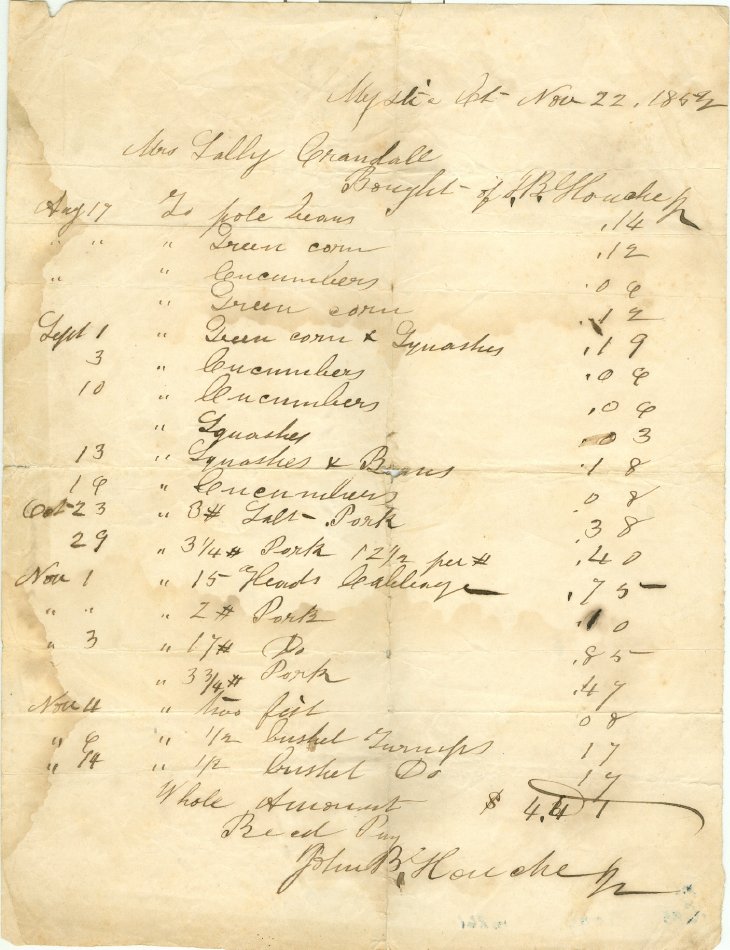 Mystic Ct Nov 22, 185
Mrs Sally Crandall
Bought of J.B. Houche
Aug 17 To pole beans .14
" " " Green corn .12
" " Cucumbers .06
" Green corn .12
Sept 1 " Green corn & Squashes .19
3 " Cucumbers .06
10 " Cucumbers .06
" Squashes .03
13 " Squashes & Beans .18
16 " Cucumbers 08
Oct 23 " 3# Salt Pork 38
29 " 3 1/4# Pork 12 1/2 per # .40
Nov 1 " 15 Heads Cabbage .75
" " " 2# Pork .10
" 3 " 17# Do .85
" 3 3/4# Pork .47
Nov 4 " two feet 08
" 6 " 1/2 bushel Turnips 17
" 14 " 1/2 bushel Do 17
Whole Amount $ 4.41
Recd Pay
John B. Houche